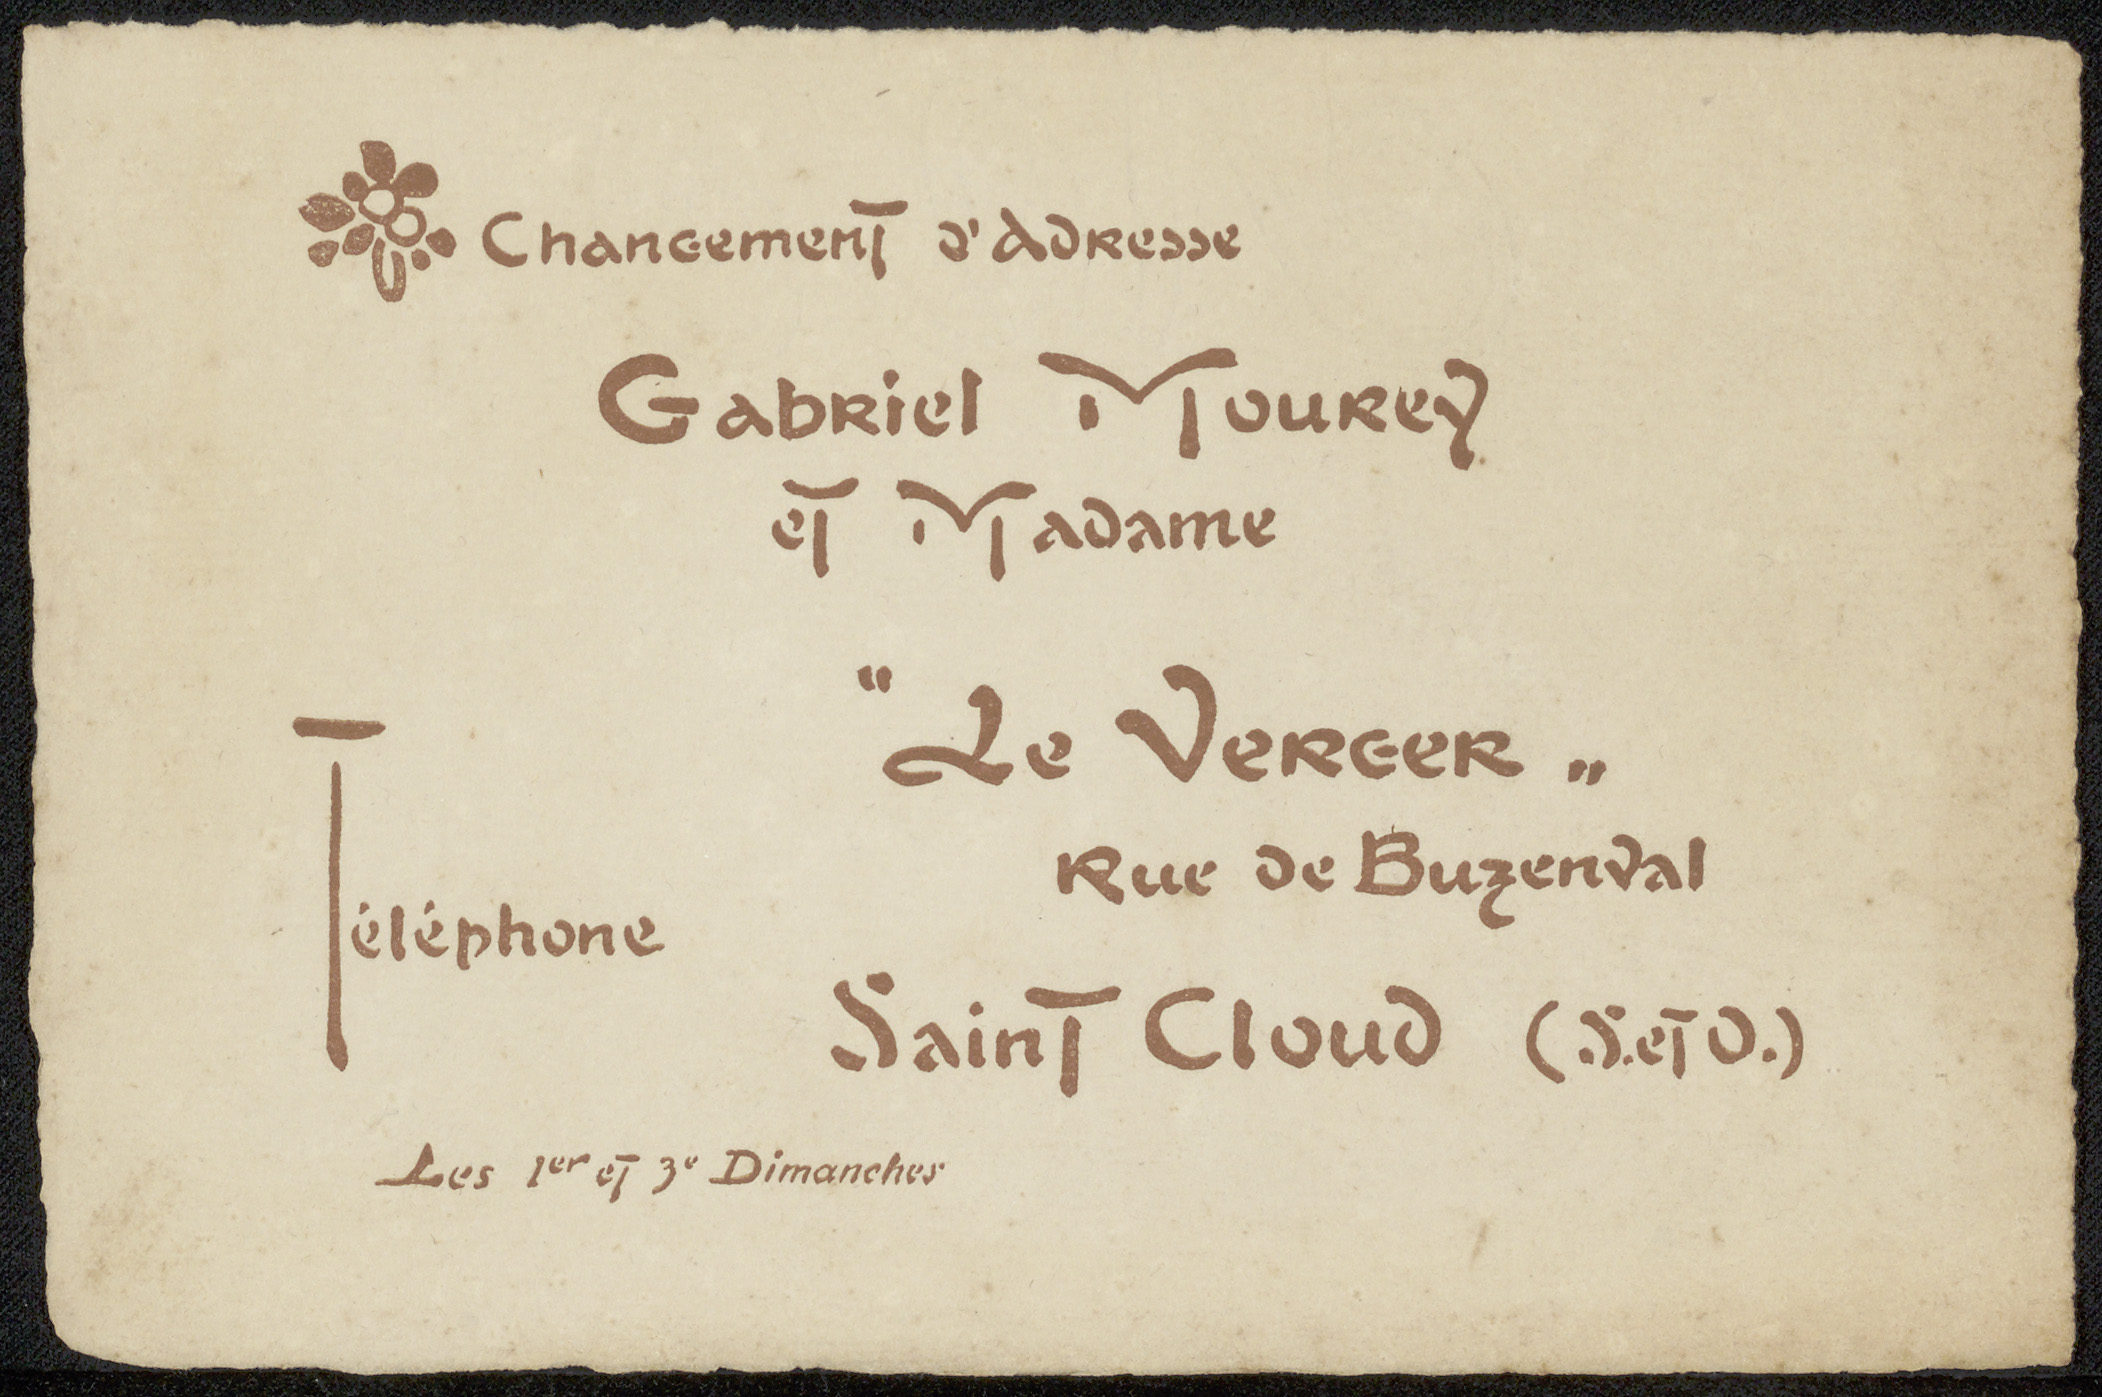 Changement d'Adresse
Gabriel Mourey
et Madame
"Le Verger„
Rue de Buzenval
Téléphone
Saint Cloud (S. et O.)
Les 1er et 3e Dimanches